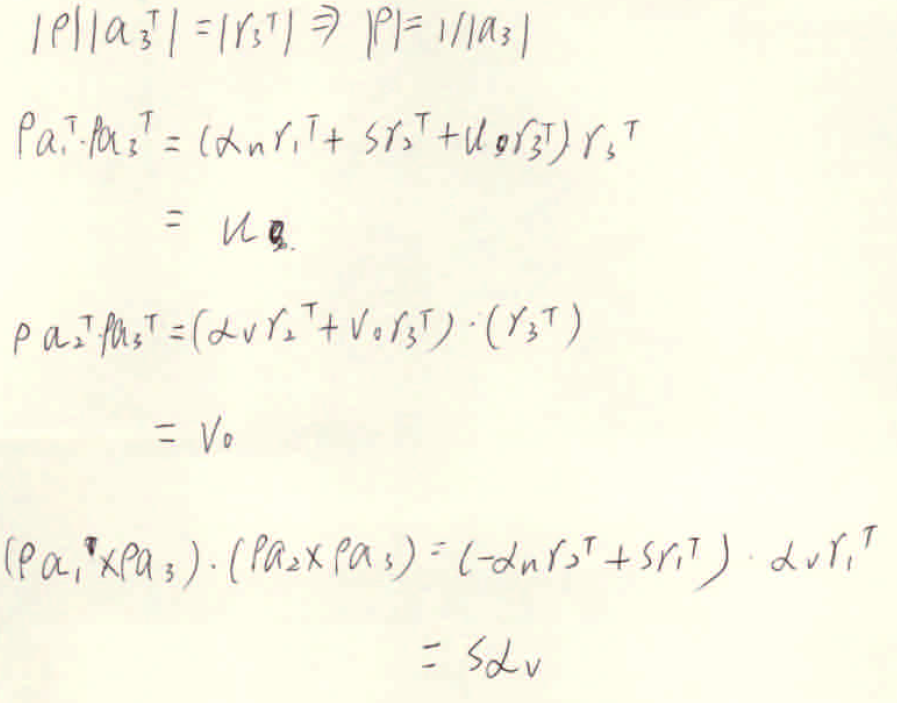 |ρ||a₃ᵀ| = |r₃ᵀ| ⇒ |ρ| = 1/|a₃|
ρa₁ᵀ·ρa₃ᵀ = (αᵤr₁ᵀ + sr₂ᵀ + u₀r₃ᵀ) r₃ᵀ
= u₀.
ρa₂ᵀ·ρa₃ᵀ = (αᵥr₂ᵀ + v₀r₃ᵀ)·(r₃ᵀ)
= v₀
(ρa₁ᵀ×ρa₃)·(ρa₂×ρa₃) = (-αᵤr₂ᵀ + sr₁ᵀ)·αᵥr₁ᵀ
= sαᵥ